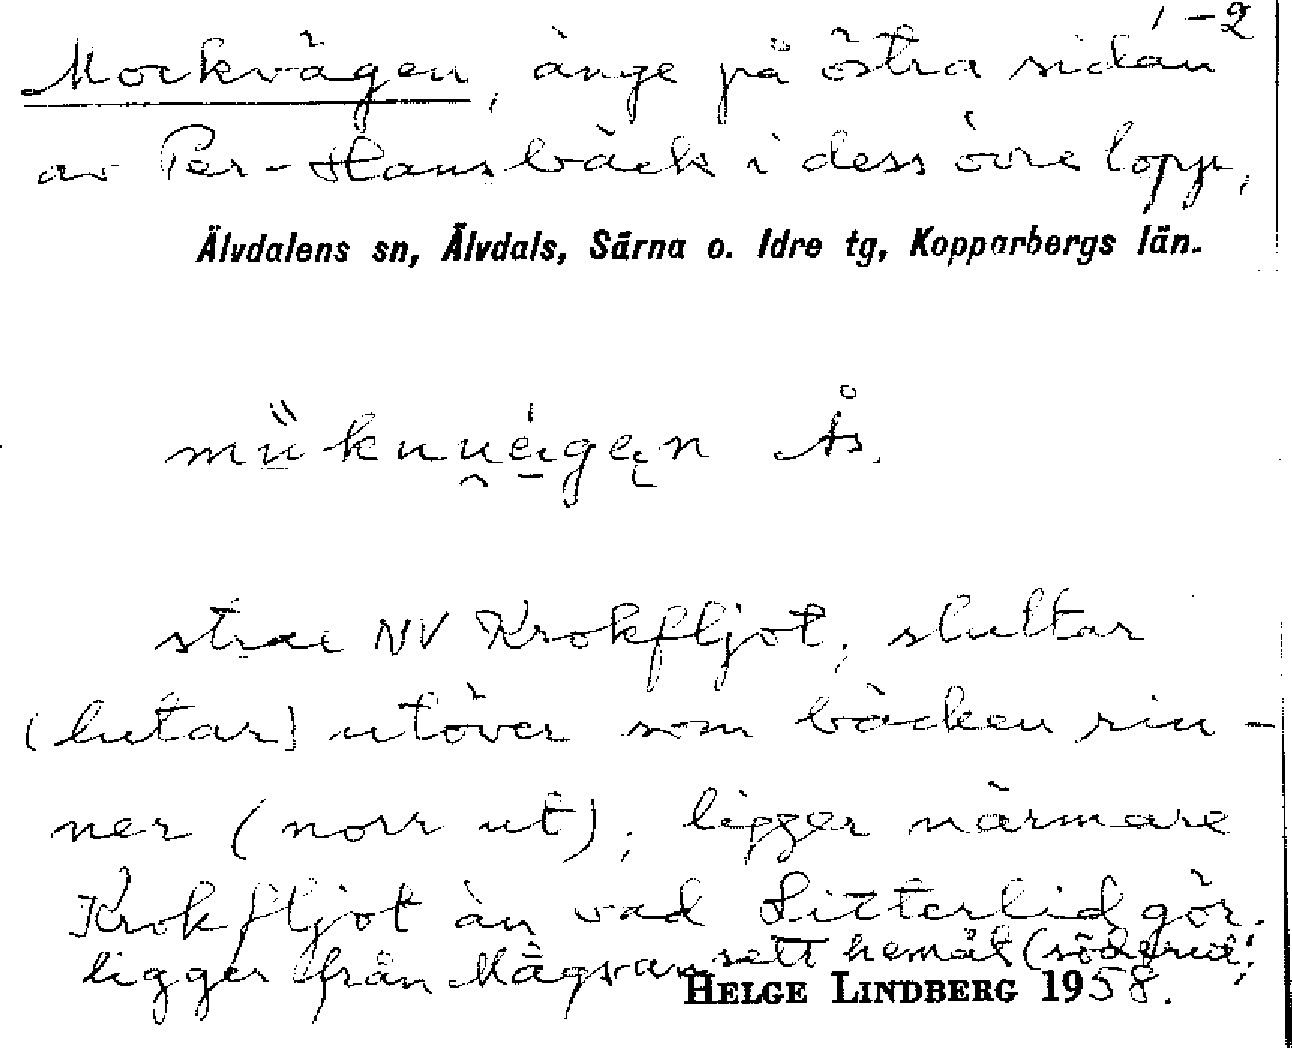 1-2
Mockvägen, änge på östra sidan
av Per-Hansbäck i dess övre lopp,
Älvdalens sn, Älvdals, Särna o. Idre tg, Kopparbergs län.
Ås.
strax NV Krokfljot, sluttar
(lutar) utöver som bäcken rin-
ner (norr ut), ligger närmare
Krokfljot än vad Sitterlid gör.
ligger från Mågsvan sett hemåt (söderut!
HELGE LINDBERG 1958.